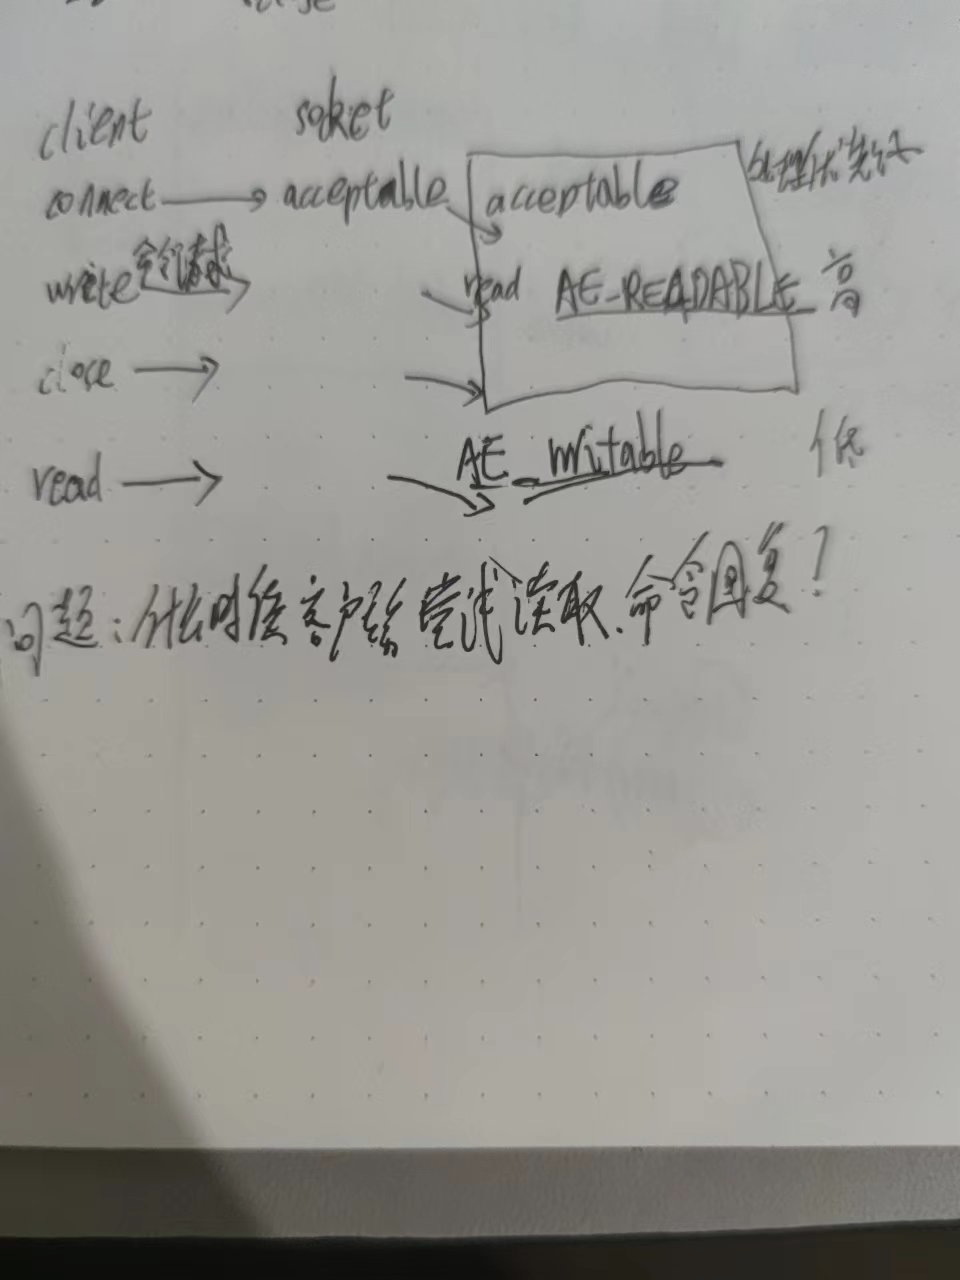 client soket
connect acceptable acceptable 处理优先级
write 命令请求 read AE-READABLE 高
close
read AE-writable 低
问题:什么时候客户端尝试读取.命令回复?